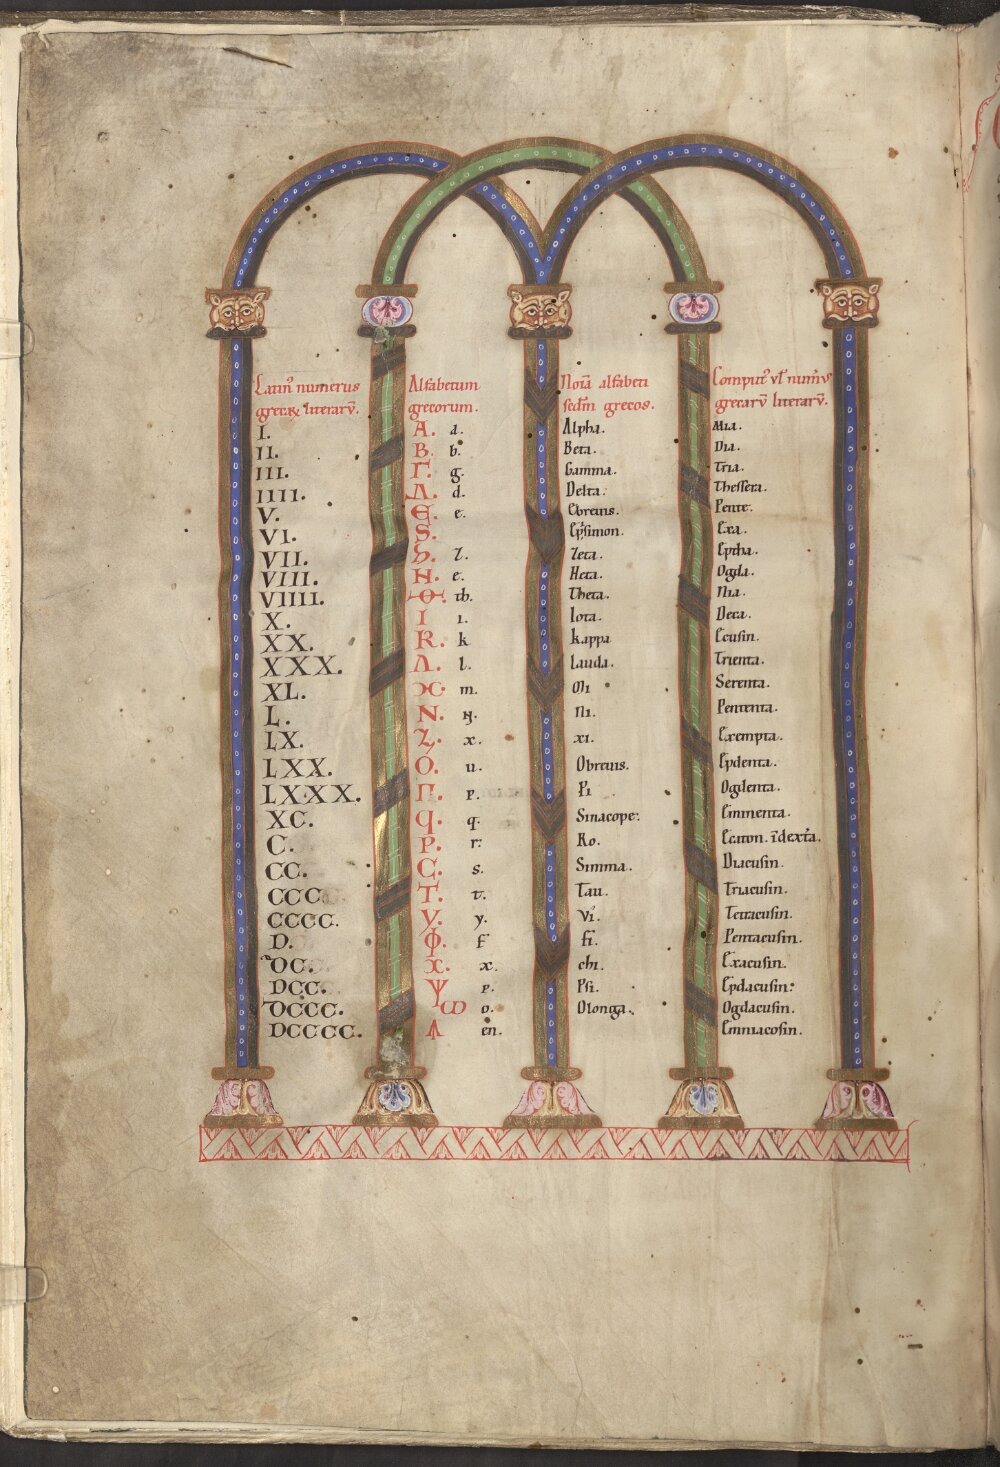 Latin⁹ numerus Alfabetum Noīa alfabeti Comput⁹ vl̄ num̄us
grecaꝝ literarū. grecorum. sedm̄ grecos. grecarū literarū.
I. A. a. Alpha. Mia.
II. B. b. Beta. Dia.
III. Γ. g. Gamma. Tria.
IIII. Δ. d. Delta. Thessera.
V. E. e. Ebreuis. Pente.
VI. S. Epysimon. Exa.
VII. z. Zeta. Eptha.
VIII. H. e. Heta. Ogda.
VIIII. Θ. th. Theta. Nia.
X. I ı. Iota. Deca.
XX. K. k kappa Ecusin.
XXX. Λ. l. Lauda. Trienta.
XL. m. Mi Serenta.
L. N. n. Ni. Pententa.
LX. Z. x. xi. Exempta.
LXX. O. u. Obreuis. Epdenta.
LXXX. Π. p. Pi Ogdenta.
XC. q. q. Sinacope. Enmenta.
C. P. r. Ro. Ecaton.
CC. C. s. Simma. Diacusin.
CCC T. t. Tau. Triacusin.
CCCC. Y. y. Vi. Tetracusin.
D. Φ. f fi. Pentacusin.
DC. X. x. chi. Exacusin.
DCC. Ψ p. Psi. Epdacusin.
DCCC. ω o. Olonga. Ogdacusin.
DCCCC. en. Enniacosin.